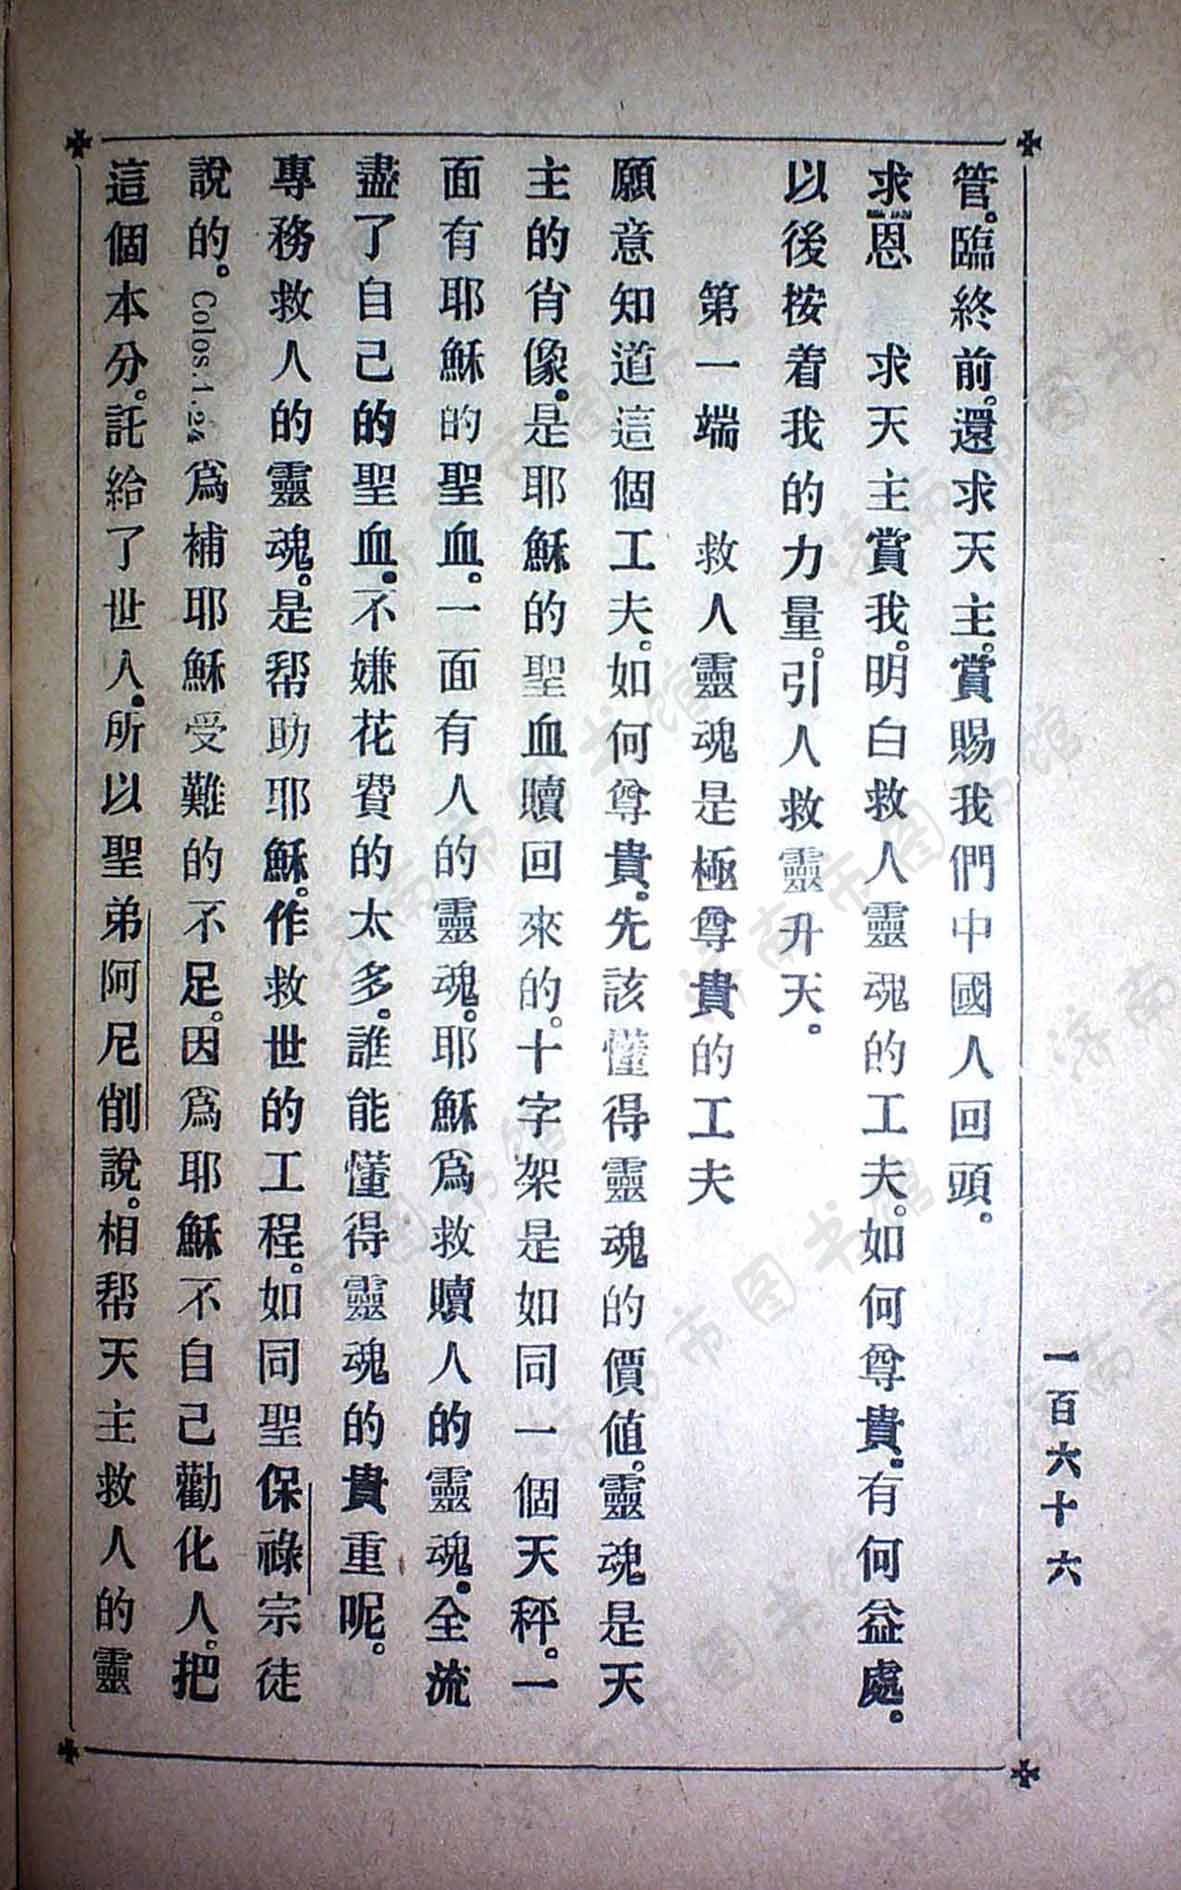 管。臨終前。還求天主。賞賜我們中國人回頭。
求恩　求天主賞我。明白救人靈魂的工夫。如何尊貴。有何益處。
以後按着我的力量。引人救靈升天。
第一端　救人靈魂是極尊貴的工夫
願意知道這個工夫。如何尊貴。先該懂得靈魂的價値。靈魂是天
主的肖像。是耶穌的聖血贖回來的。十字架是如同一個天秤。一
面有耶穌的聖血。一面有人的靈魂。耶穌爲救贖人的靈魂。全流
盡了自己的聖血。不嫌花費的太多。誰能懂得靈魂的貴重呢。
專務救人的靈魂。是帮助耶穌。作救世的工程。如同聖保祿宗徒
說的。Colos.1.24 爲補耶穌受難的不足。因爲耶穌不自己勸化人。把
這個本分。託給了世人。所以聖弟阿尼削說。相帮天主救人的靈
一百六十六
济南市图书馆